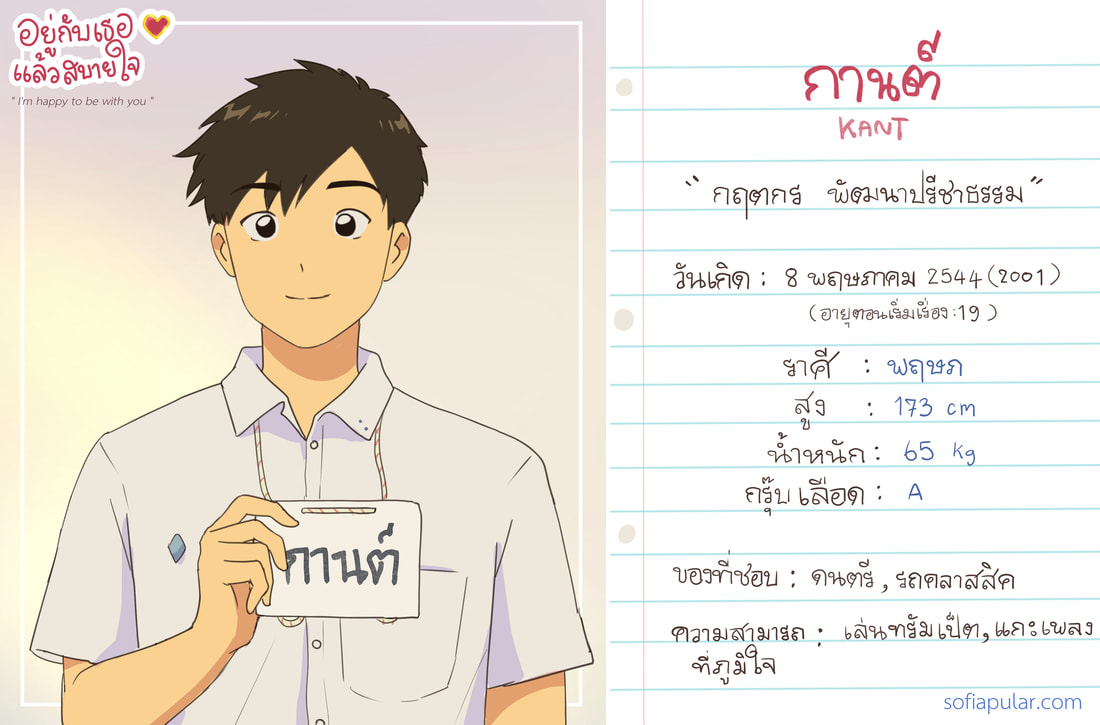 อยู่กับเธอ
แล้วสบายใจ
" I'm happy to be with you "
กานต์
กานต์
KANT
“กฤตกร พัฒนาปรีชาธรรม”
วันเกิด : 8 พฤษภาคม 2544 (2001)
(อายุตอนเริ่มเรื่อง : 19 )
ราศี : พฤษภ
สูง : 173 cm
น้ำหนัก : 65 kg
กรุ๊ปเลือด : A
ของที่ชอบ : ดนตรี, รถคลาสสิค
ความสามารถ : เล่นทรัมเป็ต, แกะเพลง
ที่ภูมิใจ
sofiapular.com